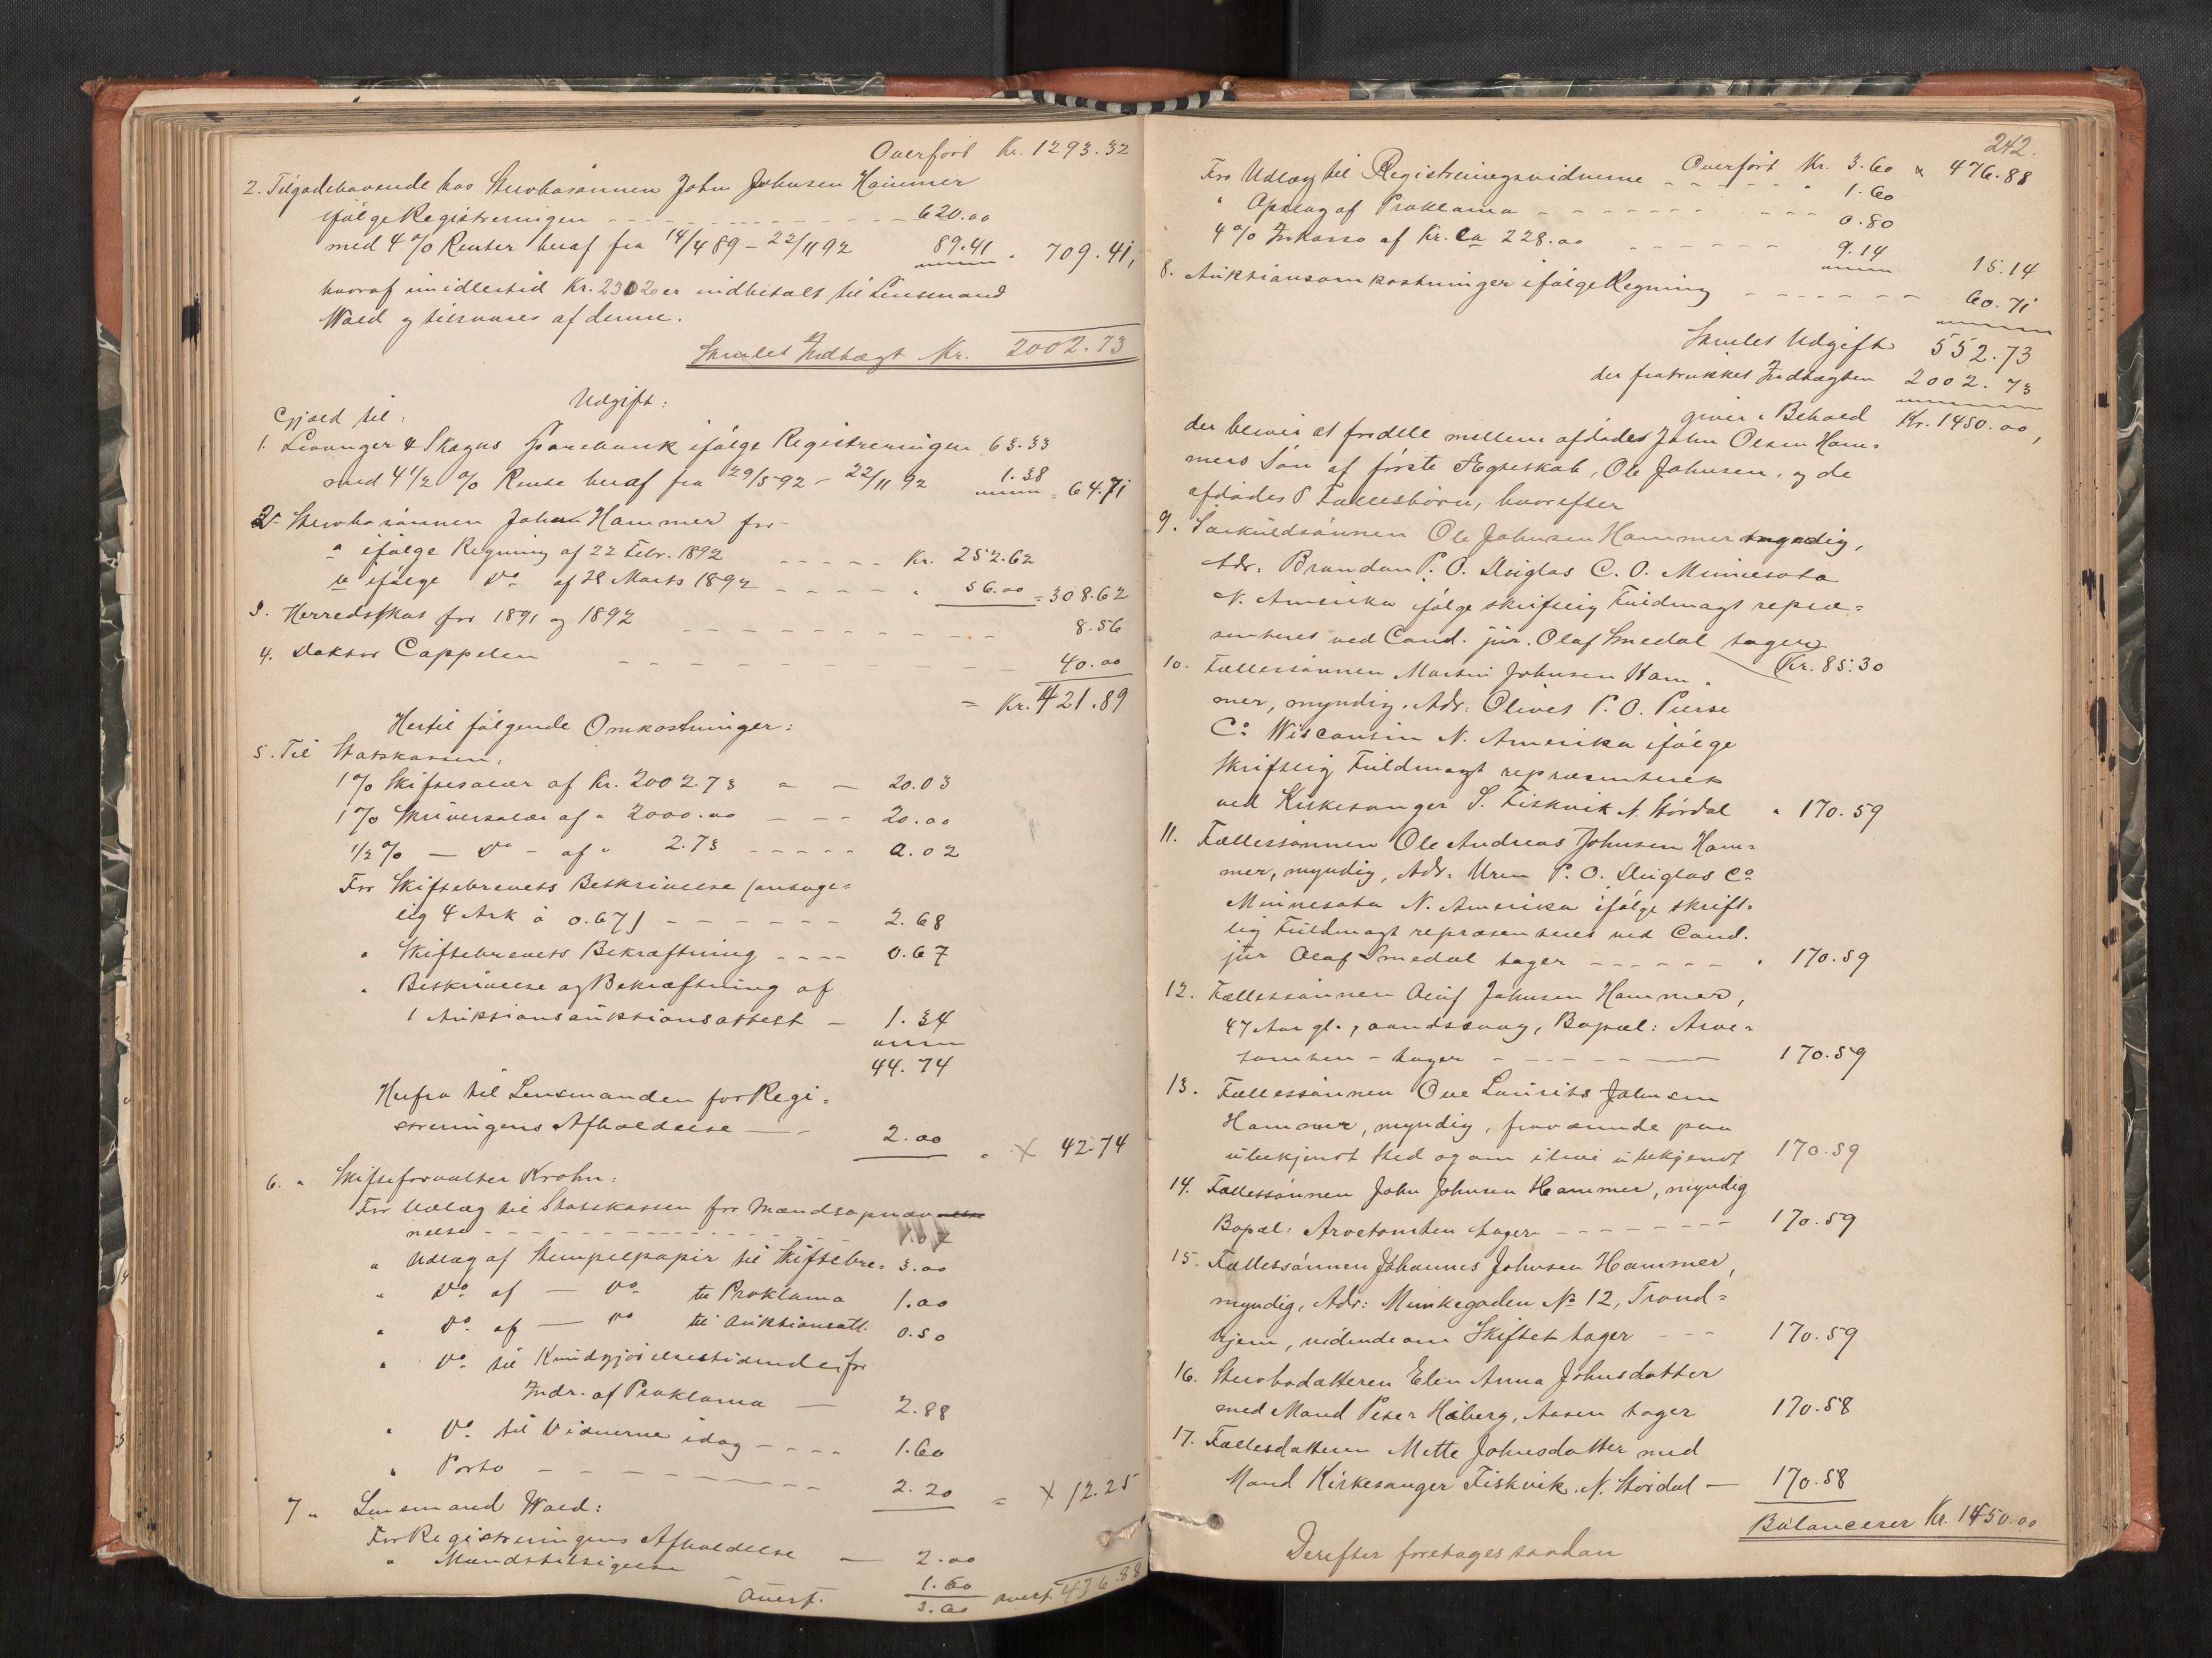 Overført Kr. 1293.32
2. Tilgodehavende hos Stervbosønnen John Johnsen Hammer
ifølge Registreringen - - - 620.00
med 4 % Renter heraf fra 14/4 89 – 22/11 92 89.41 " 709.41,
hvoraf imidlertid Kr. 230.20 er indbetalt til Lensmand
Wold og tilsvares af denne.
Samlet Indtægt Kr. 2002.73
Udgift:
Gjæld til:
1. Levanger & Skogns Sparebank ifølge Registreringen 63.33
med 4 1/2 % Rente heraf fra 29/5 92 – 22/11 92 1.38 = 64.71
2. Stervbosønnen John Hammer for
a ifølge Regning af 22 Febr. 1892 - - - - - Kr. 252.62
b ifølge Do af 28 Marts 1892 - - - - - " 56.00 = 308.62
3. Herredsskat for 1891 og 1892 - - - 8.56
4. Doktor Cappelen - - - 40.00
= Kr. 421.89
Hertil følgende Omkostninger:
5. Til Statskassen:
1 % Skiftesalær af Kr. 2002.73 - - 20.03
1 % Skriversalær af " 2000.00 - - - 20.00
1/2 % — Do - af " 2.73 - - - - - 0.02
For Skiftebrevets Beskrivelse (antage-
lig 4 Ark à 0.67) - - - - - - 2.68
" Skiftebrevets Bekræftning - - - - 0.67
" Beskrivelse og Bekræftning af
1 Auktionsauktionsattest – 1.34
44.74
Herfra til Lensmanden for Regi-
streringens Afholdelse — - 2.00 " X 42.74
6. " Skifteforvalter Krohn:
For Udlæg til Statskassen for Mandsopnæv
nelse - - - 1.07
" Udlæg af Stempelpapir til Skiftebre. 3.00
" Do af — Do til Proklama 1.00
" Do af — Do til Auktionsatt. 0.50
" Do til Kundgjørelsestidende for
Indr. af Proklama — 2.88
" Do til Vidnerne idag - - - - 1.60
" Porto - - - 2.20 = X 12.25
7 " Lensmand Wold:
For Registreringens Afholdelse — 2.00
" Mandstilsigelse - 1.60
Overf. 3.60 Overf. 476.88
242.
Overført Kr. 3.60 X 476.88
For Udlæg til Registreringsvidnerne - - - " 1.60
" Opslag af Proklama - - - 0.80
4 % Inkasso af Kr. ca 228.00 - - - 9.14 15.14
8. Auktionsomkostninger ifølge Regning - - - 60.71
Samlet Udgift 552.73
der fratrukket Indtægten 2002.73
giver i Behold Kr. 1450.00,
der bliver at fordele mellem afdøde John Olsen Ham-
mers Søn af første Ægteskab, Ole Johnsen, og de
afdødes 8 Fællesbørn, hvorefter
9. Særkuldsønnen Ole Johnsen Hammer myndig,
Adr. Brandon P. O. Duglas C. O. Minnesota
N. Amerika ifølge skriftlig Fuldmagt repræ-
senteres ved Cand. jur. Olaf Smedal tager Kr. 85.30
10. Fællessønnen Martin Johnsen Ham-
mer, myndig. Adr: Olivet P. O. Pierse
Co Wisconsin N. Amerika ifølge
skriftlig Fuldmagt repræsenteret
ved Kirkesanger S. Fiskvik N. Størdal " 170.59
11. Fællessønnen Ole Andreas Johnsen Ham-
mer, myndig, Adr. Uren P. O. Duglas Co
Minnesota N. Amerika ifølge skrift-
lig Fuldmagt repræsenteres ved Cand.
jur Olaf Smedal tager - - - - - - " 170.59
12. Fællessønnen Oluf Johnsen Hammer,
47 Aar gl., aandssvag, Bopæl: Arve-
tomten - tager - - - 170.59
13. Fællessønnen Ove Laurits Johnsen
Hammer, myndig, fraværende paa
ubekjendt Sted og om i live ubekjendt 170.59
14. Fællessønnen John Johnsen Hammer, myndig
Bopæl: Arvetomten tager - - - 170.59
15. Fællessønnen Johannes Johnsen Hammer,
myndig, Adr: Munkegaden No 12, Trond-
hjem, vidende om Skiftet tager - - - 170.59
16. Stervbodatteren Elen Anna Johnsdatter
med Mand Peter Høiberg, Aasen tager 170.58
17. Fællesdatteren Mette Johnsdatter med
Mand Kirkesanger Fiskvik. N. Størdal — 170.58
Balancerer Kr. 1450.00
Derefter foretages saadan